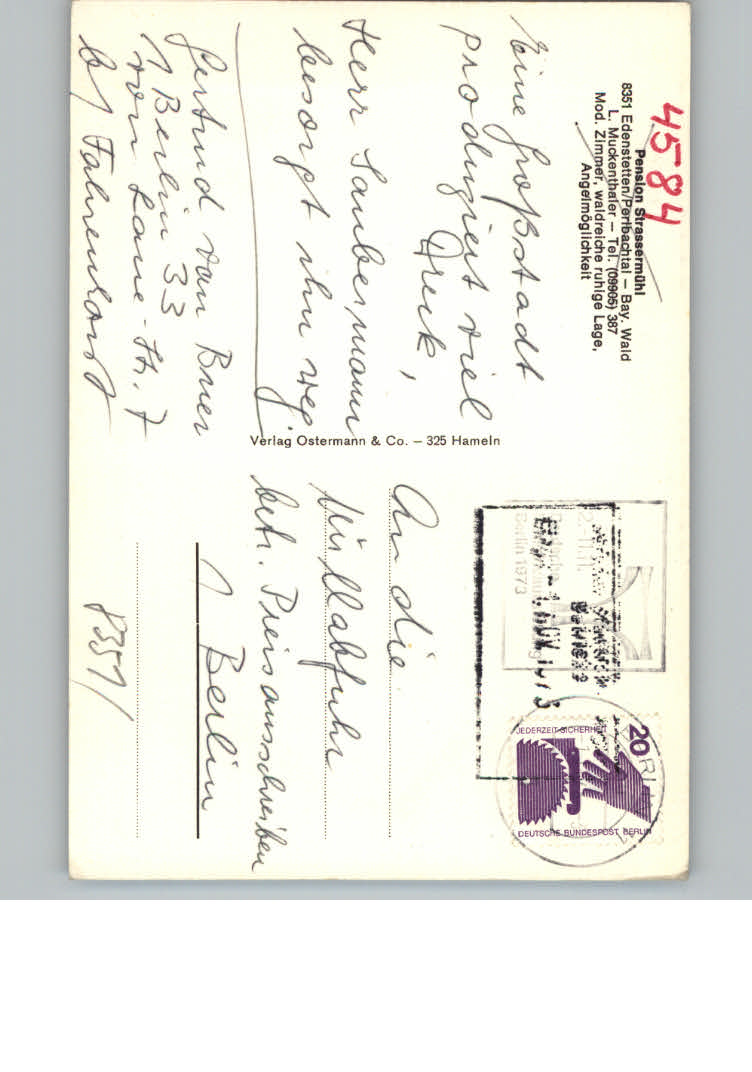 4584
Pension Strassermühl
8351 Edenstetten/Perlbachtal – Bay. Wald
L. Muckenthaler – Tel. (09905) 387
Mod. Zimmer, waldreiche ruhige Lage,
Angelmöglichkeit
Eine Großstadt
produziert viel
Dreck,
Herr Saubermann
besorgt ihn weg
Gertrud van Buer
1 Berlin 33
von Laue-Str. 7
b/ Fahrenhorst
Verlag Ostermann & Co. – 325 Hameln
Berlin 1973
20
JEDERZEIT SICHERHEIT
DEUTSCHE BUNDESPOST BERLIN
An die
Müllabfuhr
betr. Preisausschreiben
1 Berlin
8351/